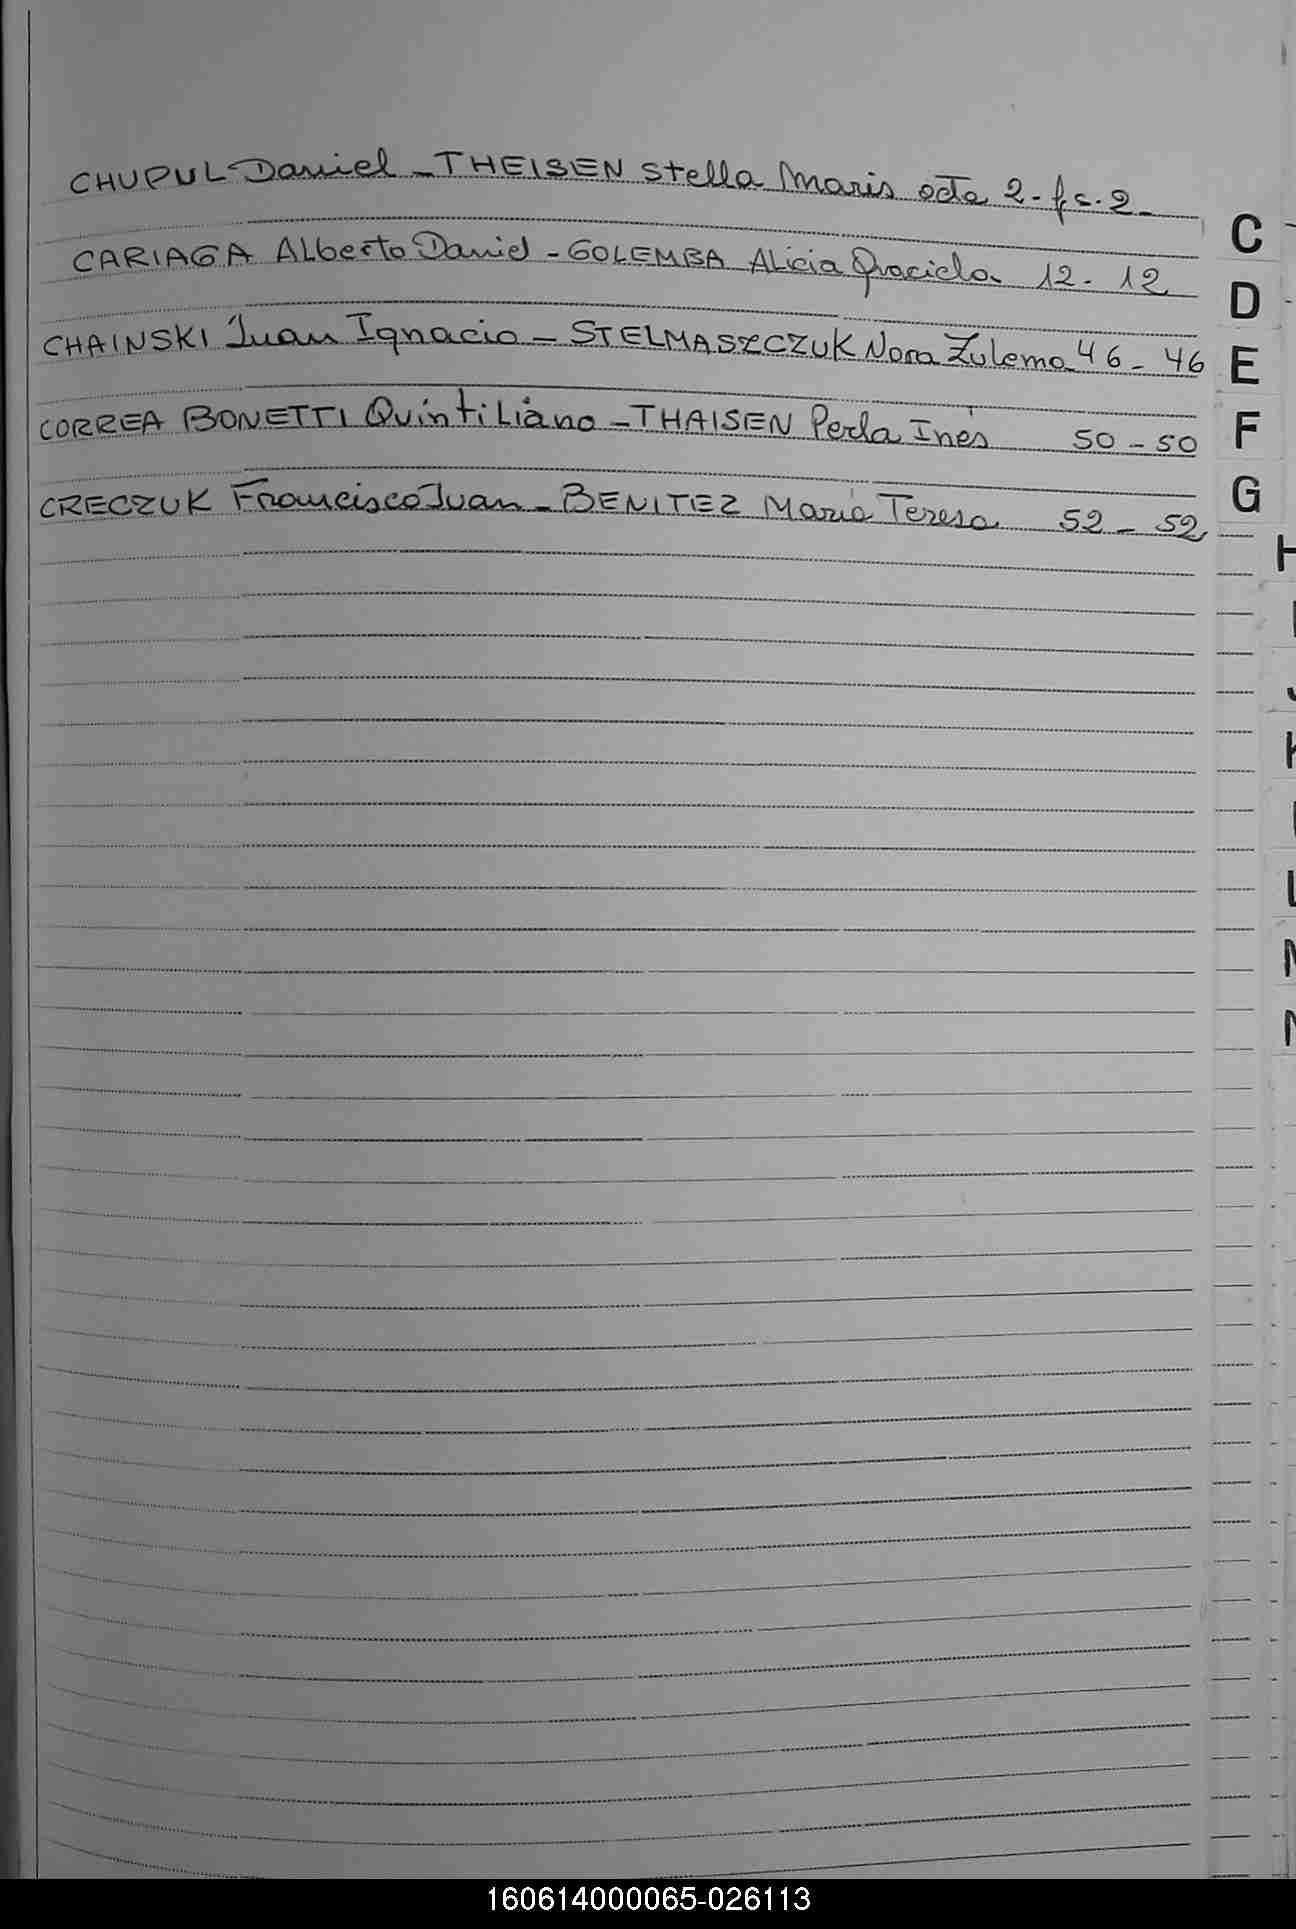 CHUPUL Daniel - THEISEN Stella Maris acta 2 - fs. 2 -
CARIAGA Alberto Daniel - GOLEMBA Alicia Graciela 12 - 12
CHAINSKI Juan Ignacio - STELMASZCZUK Nora Zulema 46 - 46
CORREA BONETTI Quintiliano - THAISEN Perla Inés 50 - 50
CRECZUK Francisco Juan - BENITEZ María Teresa 52 - 52
C
D
E
F
G
H
J
K
L
160614000065-026113